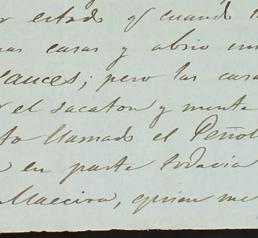 estado q cuando
casas y abrio un
sauces; pero las cas
el sacaton y menta
to llamado el Peñol
en parte todavia
Maceira, quien me